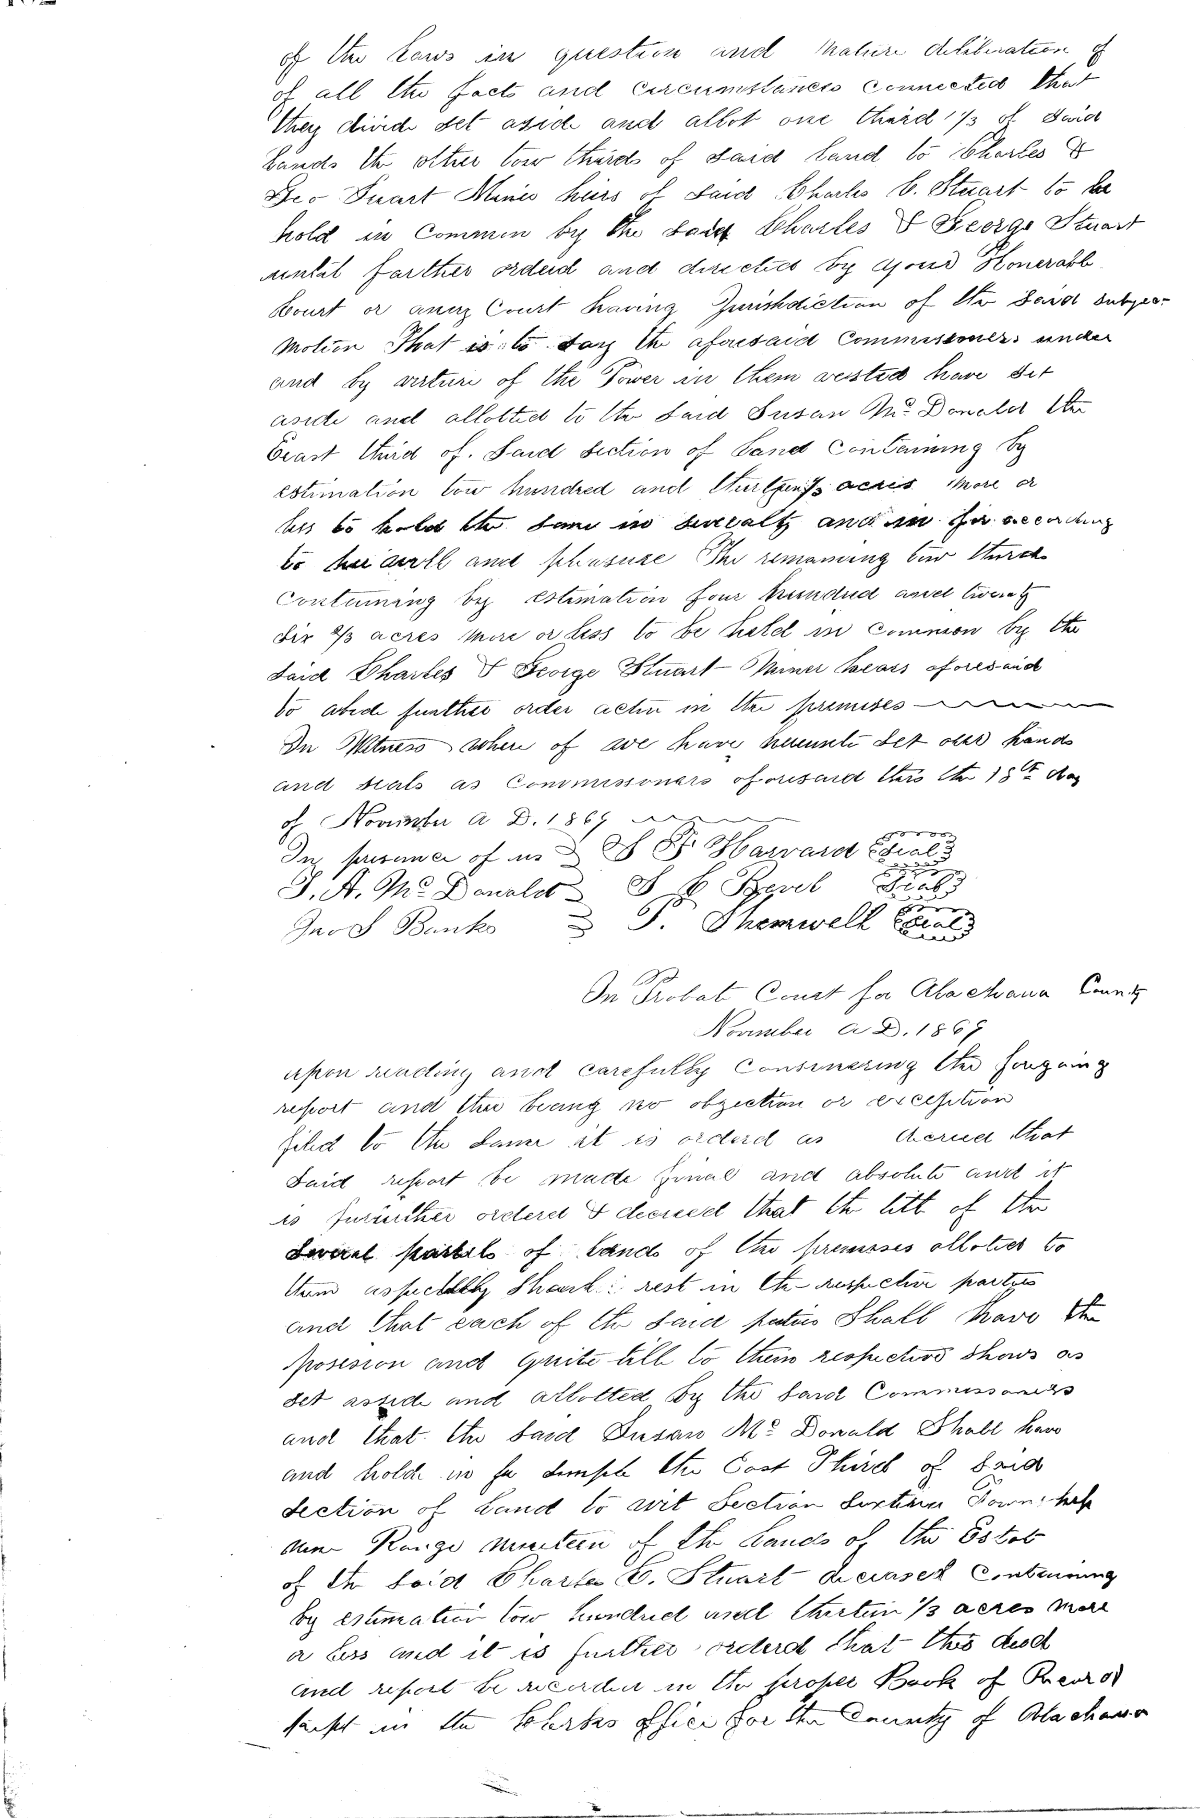 of the Laws in question and Mature deliberation of
of all the facts and circumstances connected that
they divide set aside and allot one third 1/3 of said
Lands the other tow thirds of said land to Charles &
Geo Suart Minis heirs of said Charles C. Stuart to be
hold in Common by the said Charles & George Stuart
until farther orderd and directed by your Honerable
Court or anny Court having Jurishdiction of the said subjec-
Motion That is to say the aforesaid Commissioners under
and by verture of the Power in them vested have set
aside and allotted to the said Susan Mc Donald the
East third of. said section of Land Containing by
estimation tow hundred and thirteen 1/3 acres more or
less to hold the same in severalty and in fee according
to her will and pleasure The remaning tow thirds
Containing by estimation four hundred and twenty
six 2/3 acres more or less to be held in common by the
said Charles & George Stuart Miner hears aforesaid
to abide further order actin in the premises
In Witness where of we have hereunto set our hands
and seals as Commissoners aforesaid this the 18th day
of November A D. 1869
In presence of us S F Harvard Seal
J. A. Mc Donald S C Bevel Seal
Jno S Banks P. Shemwell Seal
In Probate Court for Alachaua County
November A D. 1869
upon reading and carefully Consinering the forgoing
report and the being no objection or exception
filed to the same it is orderd as decreed that
said report be made final and absolute and it
is furinther orderd & decreed that the titl of the
several parsels of Lands of the premises alloted to
them aspectally Shall rest in the respective parties
and that each of the said parties Shall have the
posesion and quite title to them respective shows as
set asside and allotted by the said Commissoners
and that the said Susan Mc Donald Shall have
and hold in fee simple the East Third of said
section of Land to wit Section Sixteen Township
nine Range nineteen of the Lands of the Estate
of the said Charles C. Stuart deceased Containing
by estimation tow hundred and thirtein 1/3 acres more
or less and it is further orderd that this deed
and report be recorded in the proper Book of Record
kept in the Clerks office for the County of Alachaua